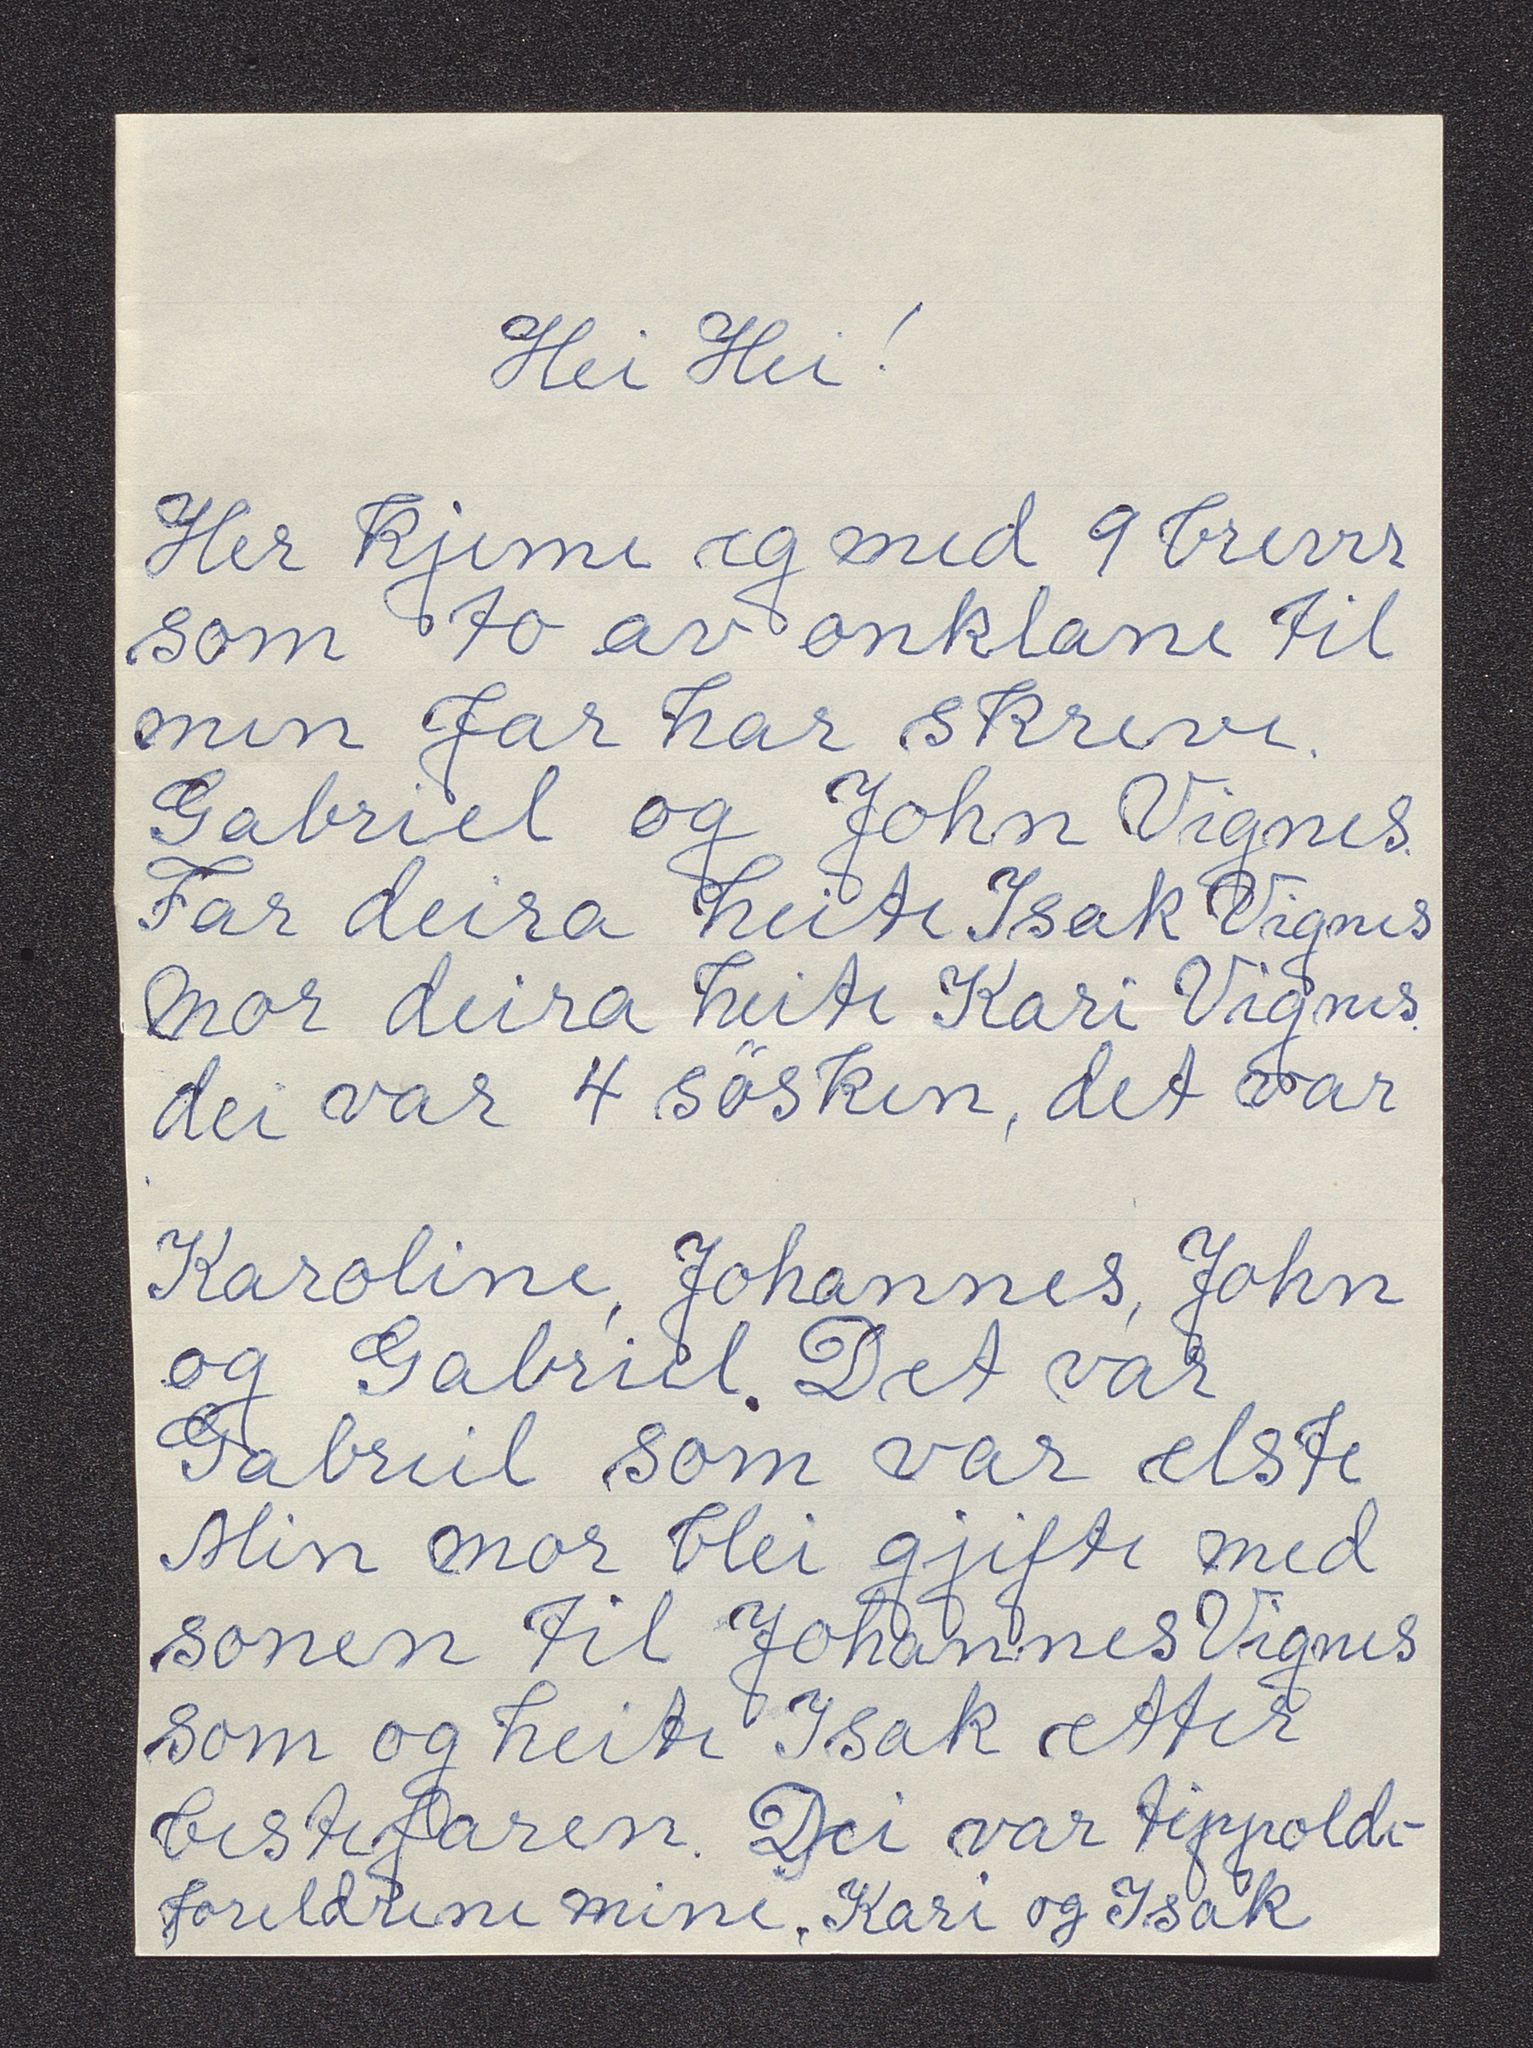 Hei Hei!
Her kjeme eg med 9 brevrr
som to av onklane til
min far har skreve.
Gabriel og John Vignes.
Far deira heite Isak Vignes
mor deira heite Kari Vignes.
dei var 4 sösken, det var
Karoline, Johannes, John
og Gabriel. Det var
Gabriel som var elste
Min mor blei gjifte med
sonen til Johannes Vignes
som og heite Isak etter
bestefaren. Dei var tippolde-
foreldrene mine. Kari og Isak